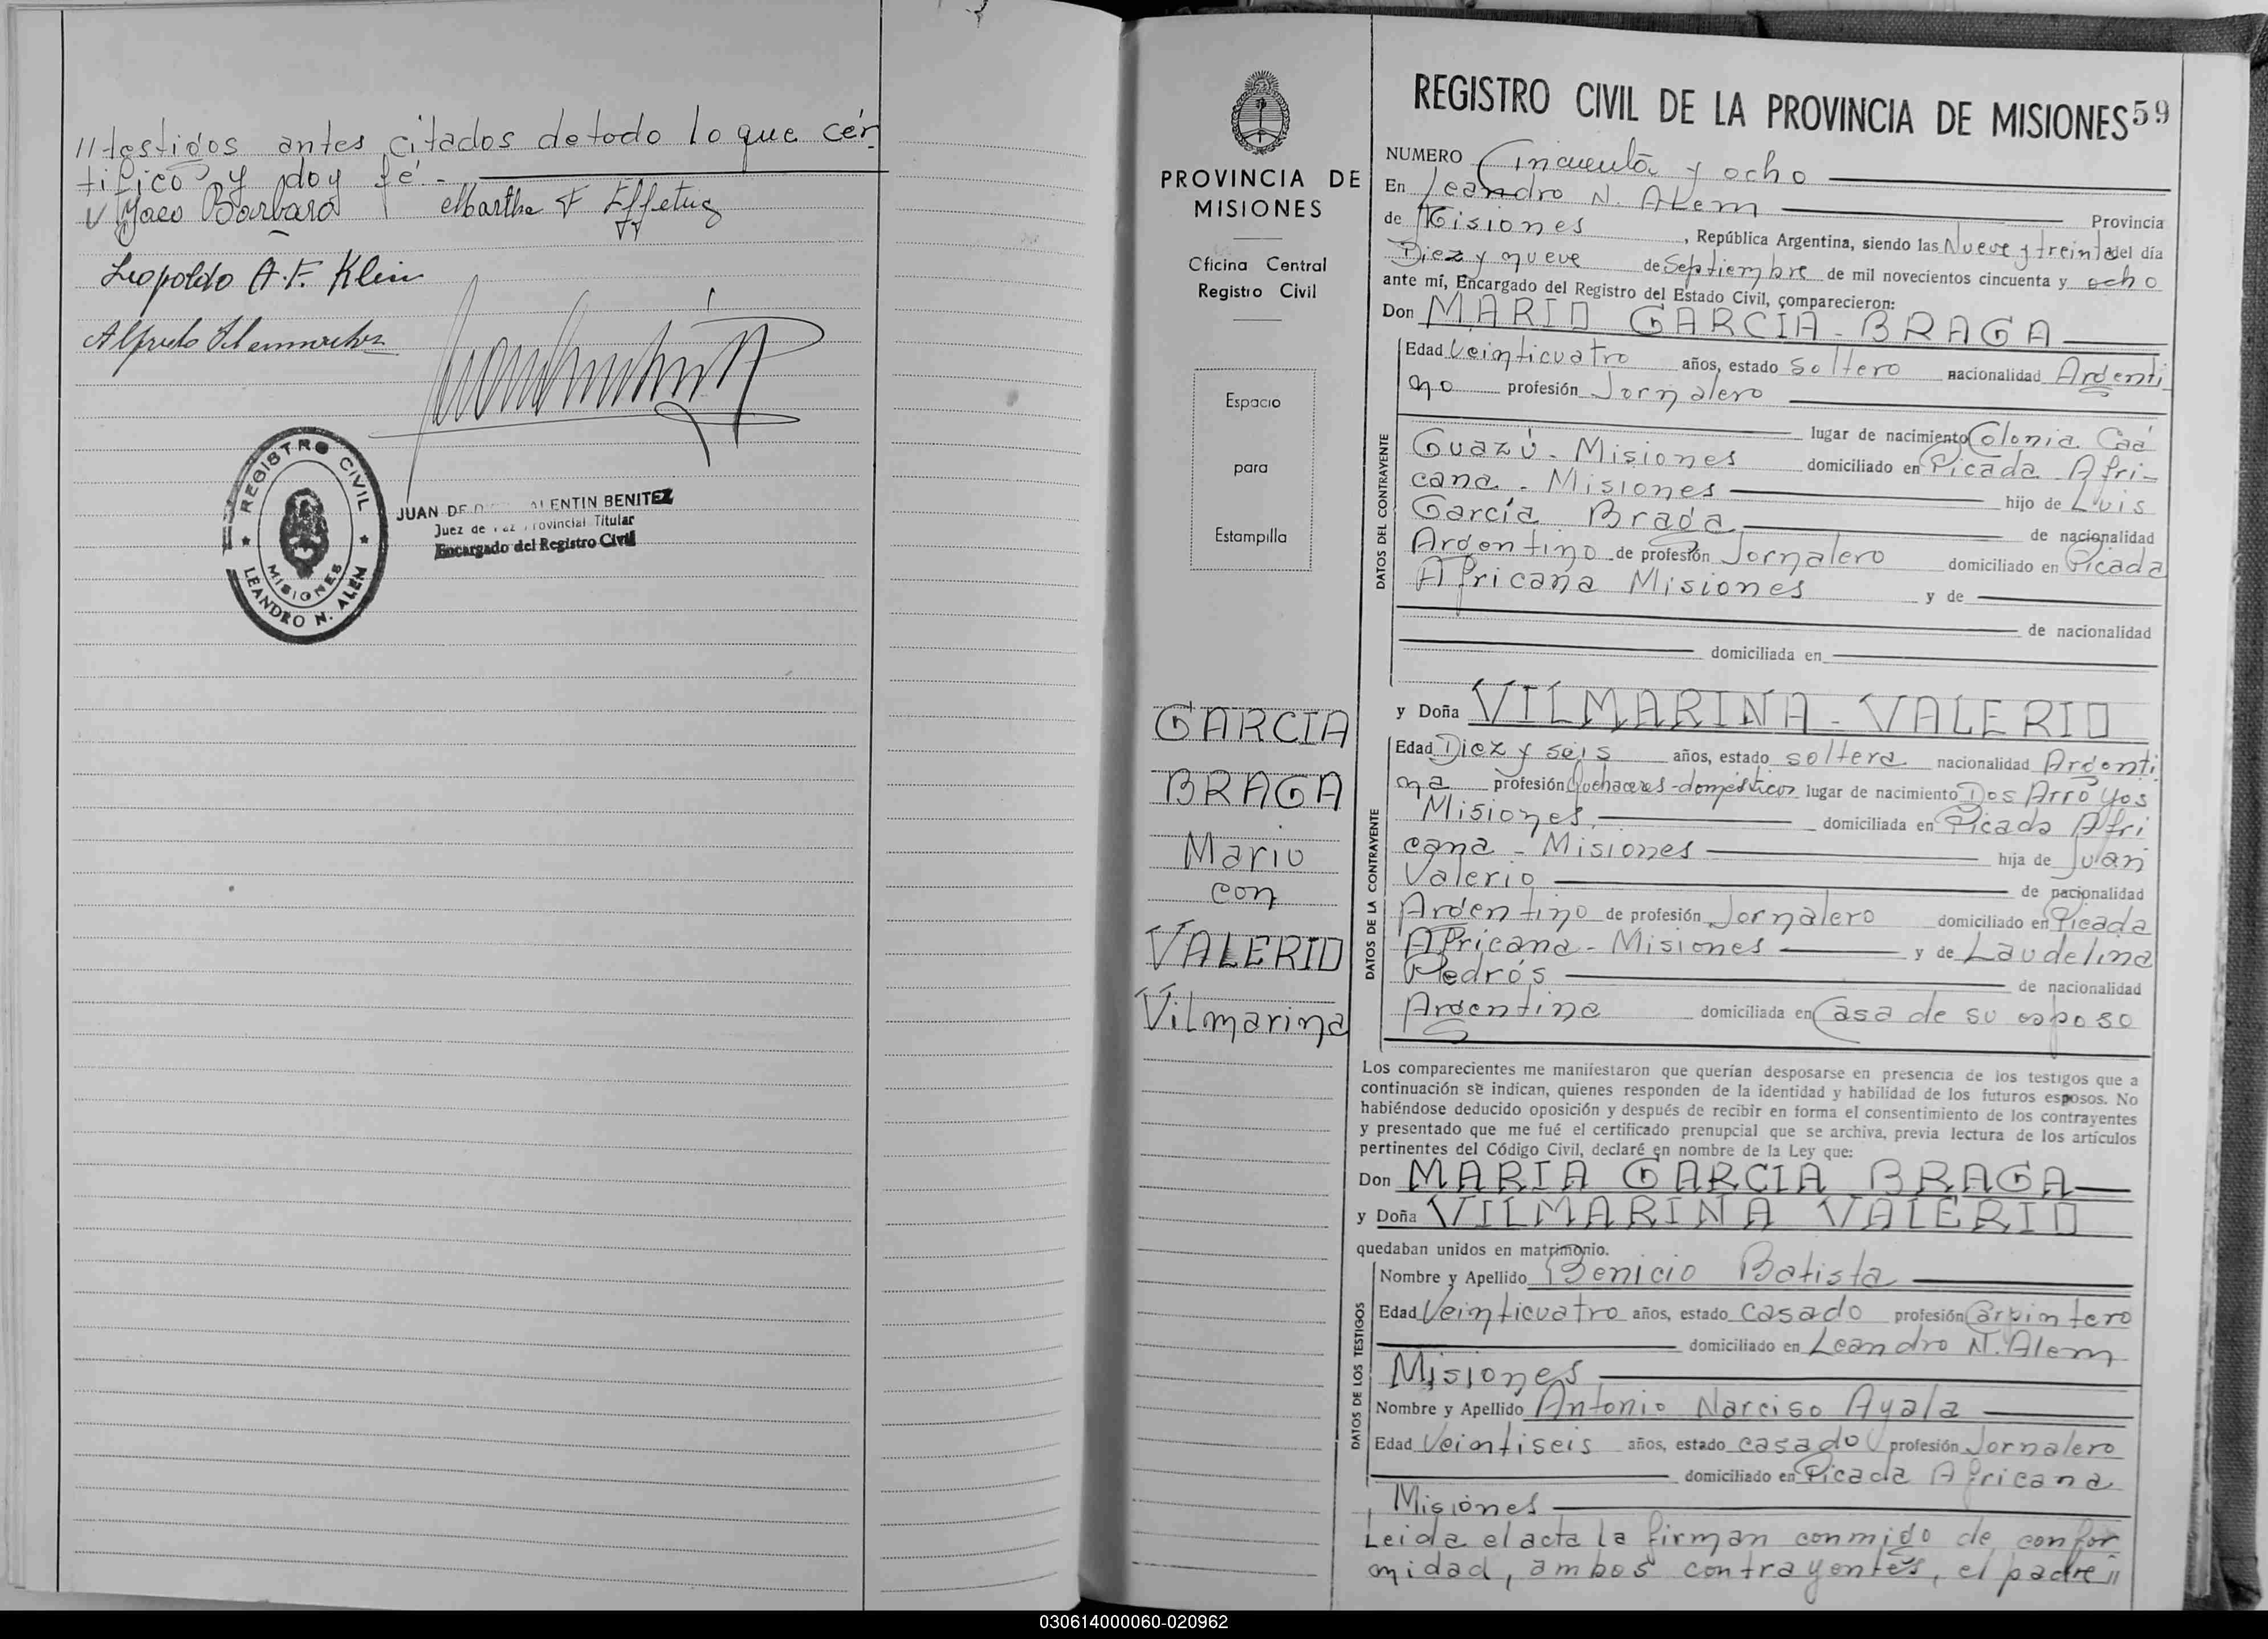 //testigos antes citados de todo lo que cer
tifico y doy fé.-
Jaco Barbaro Martha F Effetug
Leopoldo A. F. Klein
Alfredo
REGISTRO CIVIL
MISIONES
LEANDRO N. ALEM
JUAN DE ALENTIN BENITEZ
Juez de Paz Provincial Titular
Encargado del Registro Civil
PROVINCIA DE
MISIONES
Oficina Central
Registro Civil
Espacio
para
Estampilla
GARCIA
BRAGA
Mario
con
VALERIO
Vilmarina
REGISTRO CIVIL DE LA PROVINCIA DE MISIONES 59
NUMERO Cincuenta y ocho
En Leandro N. Alem Provincia
de Misiones, República Argentina, siendo las Nueve y treinta del día
Diez y nueve de Septiembre de mil novecientos cincuenta y ocho
ante mí, Encargado del Registro del Estado Civil, comparecieron:
Don MARIO GARCIA-BRAGA
DATOS DEL CONTRAYENTE
Edad Veinticuatro años, estado soltero nacionalidad Argenti
no profesión Jornalero
lugar de nacimiento Colonia Caá
Guazú - Misiones domiciliado en Picada Afri-
cana - Misiones hijo de Luis
García Braga de nacionalidad
Argentino de profesión Jornalero domiciliado en Picada
Africana Misiones y de
de nacionalidad
domiciliada en
y Doña VILMARINA - VALERIO
DATOS DE LA CONTRAYENTE
Edad Diez y seis años, estado soltera nacionalidad Argenti
na profesión Quehaceres-domésticos lugar de nacimiento Dos Arroyos
Misiones domiciliada en Picada Afri
cana - Misiones hija de Juan
Valerio de nacionalidad
Argentino de profesión Jornalero domiciliado en Picada
Africana - Misiones y de Laudelina
Pedrós de nacionalidad
Argentina domiciliada en Casa de su esposo
Los comparecientes me manifestaron que querían desposarse en presencia de los testigos que a
continuación se indican, quienes responden de la identidad y habilidad de los futuros esposos. No
habiéndose deducido oposición y después de recibir en forma el consentimiento de los contrayentes
y presentado que me fué el certificado prenupcial que se archiva, previa lectura de los artículos
pertinentes del Código Civil, declaré en nombre de la Ley que:
Don MARIA GARCIA BRAGA
y Doña VILMARINA VALERIO
quedaban unidos en matrimonio.
DATOS DE LOS TESTIGOS
Nombre y Apellido Benicio Batista
Edad Veinticuatro años, estado casado profesión Carpintero
domiciliado en Leandro N. Alem
Misiones
Nombre y Apellido Antonio Narciso Ayala
Edad Veintiseis años, estado casado profesión Jornalero
domiciliado en Picada Africana
Misiones
Leida el acta la firman conmigo de confor
midad, ambos contrayentes, el padre //
030614000060-020962